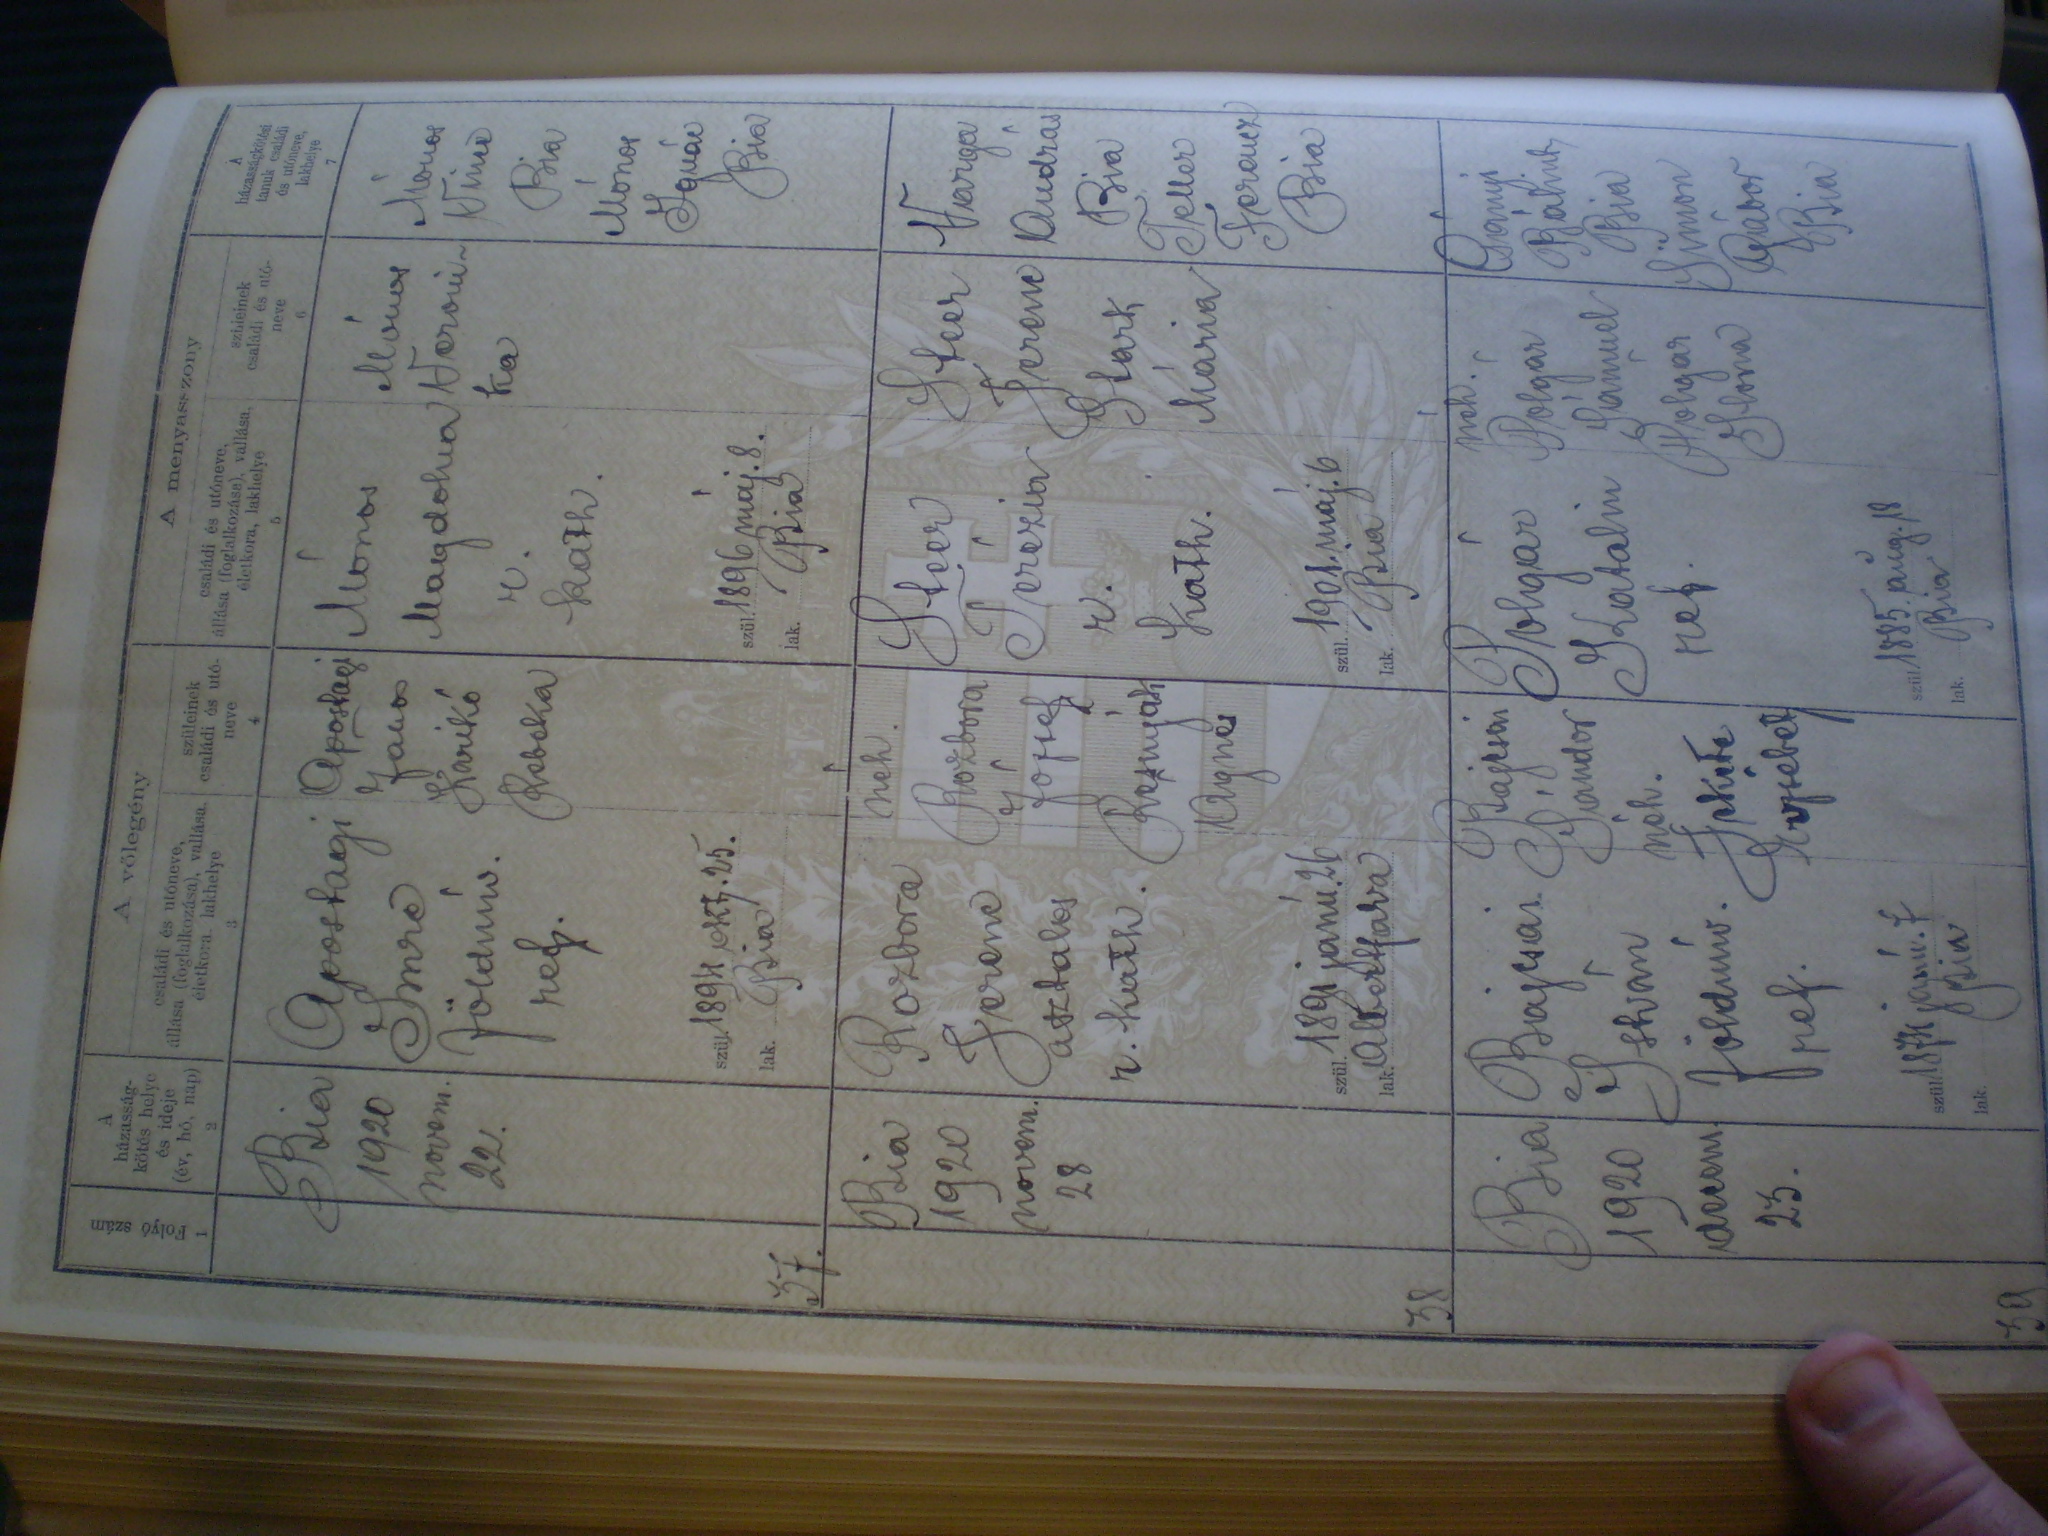 Folyó
szám
1
A
házasság-
kötés helye
és ideje
(év, hó, nap)
2
A vőlegény
családi és utóneve,
állása (foglalkozása), vallása,
életkora, lakhelye
3
szüleinek
családi és utó-
neve
4
A menyasszony
családi és utóneve,
állása (foglalkozása), vallása,
életkora, lakhelye
5
szüleinek
családi és utó-
neve
6
A
házasságkötési
tanuk családi
és utóneve,
lakhelye
7
37.
Bia
1920
novem.
22.
Apostagi
Imre
földmív.
ref.
szül. 1894 okt. 25.
lak. Bia
Apostagi
János
Karikó
Rebeka
Mónos
Magdolna
r.
kath.
szül. 1896 máj. 8.
lak. Bia
Mónos
Veroni-
ka
Mónos
Vince
Bia
Mónos
Ignác
Bia
38
Bia
1920
novem.
28
Rozbora
Ferenc
asztalos
r. kath.
szül. 1891 janu. 26
lak. Albertfarva
néh.
Rozbora
József
Repnyák
Ágnes
Steer
Terézia
r.
kath.
szül. 1901. máj. 6
lak. Bia
Steer
Ferenc
Stark
Mária
Varga
András
Bia
Teller
Ferencz
Bia
39
Bia
1920
decem.
23.
Bajcsai
István
földmív.
ref.
szül. 1874 janu. 7
lak. Bia
Bajcsai
Sándor
néh.
Fekete
Erzsébet
Polgár
Katalin
ref.
szül. 1885. aug. 18
lak. Bia
néh.
Polgár
Sámuel
Polgár
Ilona
Bálint
Bia
Simon
Gábor
Bia